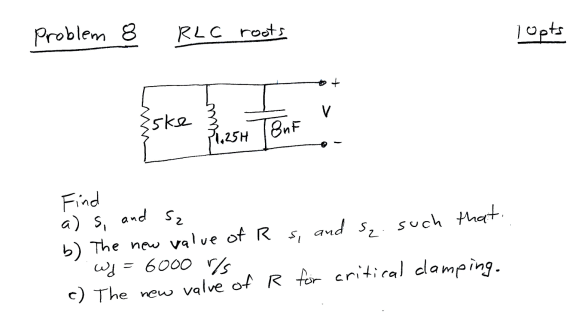 Problem 8 RLC roots 10pts
+
5kΩ 1.25H 8nF V
-
Find
a) s₁ and s₂
b) The new value of R s₁ and s₂ such that
ω_d = 6000 r/s
c) The new value of R for critical damping.